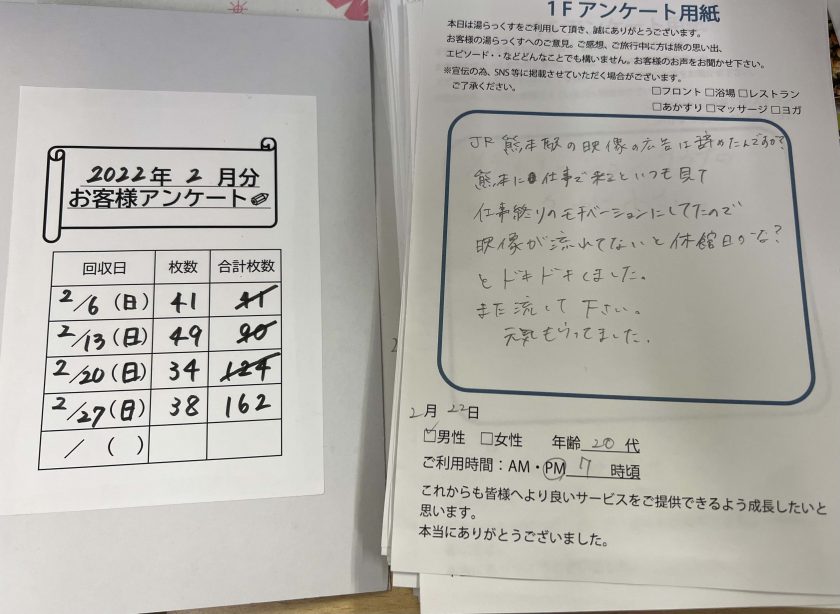 2022年 2月分
お客様アンケート
回収日 枚数 合計枚数
2/6(日) 41 41
2/13(日) 49 90
2/20(日) 34 124
2/27(日) 38 162
/ ( )
1Fアンケート用紙
本日は湯らっくすをご利用して頂き、誠にありがとうございます。
お客様の湯らっくすへのご意見。ご感想、ご旅行中に方は旅の思い出、
エピソード・・などどんなことでも構いません。お客様のお声をお聞かせ下さい。
※宣伝の為、SNS等に掲載させていただく場合がございます。
ご了承ください。
□フロント □浴場 □レストラン
□あかすり □マッサージ □ヨガ
JR熊本駅の映像の広告は辞めたんですか?
熊本に仕事で来るといつも見て
仕事終りのモチベーションにしてたので
映像が流れてないと休館日かな?
とドキドキしました。
また流して下さい。
元気もらってました。
2月22日
☑男性 □女性 年齢 20代
ご利用時間:AM・PM 7時頃
これからも皆様へより良いサービスをご提供できるよう成長したいと
思います。
本当にありがとうございました。